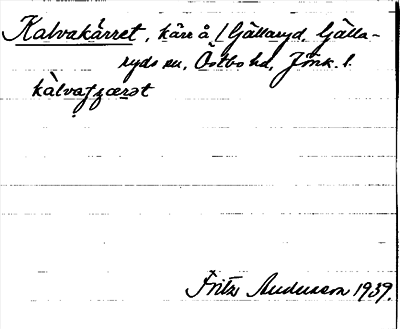 Kalvakärret, kärr å /Gällaryd, Gälla-
ryds sn, Östbo hd, Jönk. l.
kàlvaʃærət
Fritz Andersson 1939.